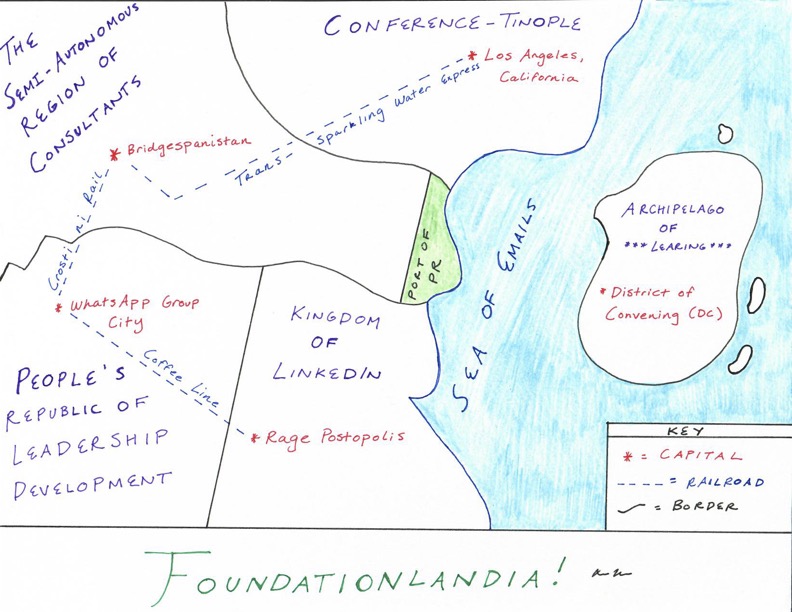 THE
SEMI-AUTONOMOUS
REGION OF
CONSULTANTS
CONFERENCE-TINOPLE
* Los Angeles,
California
* Bridgespanistan
Trans- Sparkling Water Express
Crostini Rail
* WhatsApp Group
City
Coffee Line
PEOPLE'S
REPUBLIC OF
LEADERSHIP
DEVELOPMENT
KINGDOM
OF
LINKEDIN
* Rage Postopolis
PORT OF
PR
SEA OF EMAILS
ARCHIPELAGO
OF
*** LEARING ***
* District of
Convening (DC)
KEY
* = CAPITAL
---- = RAILROAD
= BORDER
FOUNDATIONLANDIA!